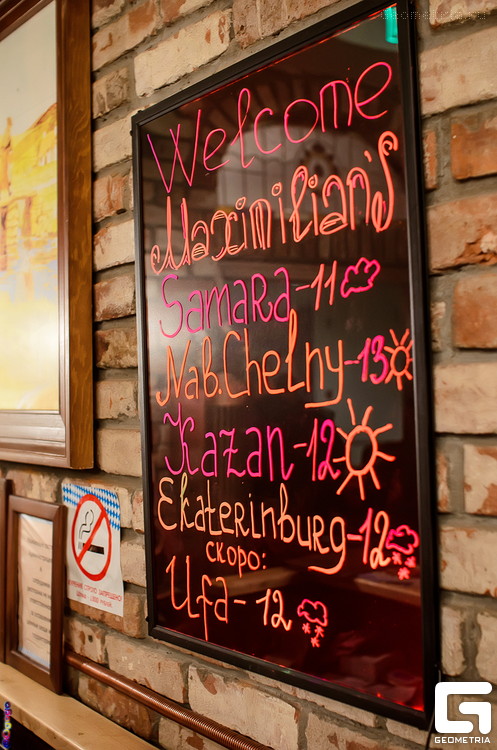 Welcome
Maximilian's
Samara-11
Nab.Chelny-13
Kazan-12
Ekaterinburg-12
скоро:
Ufa-12
КУРЕНИЕ СТРОГО ЗАПРЕЩЕНО
G
GEOMETRIA